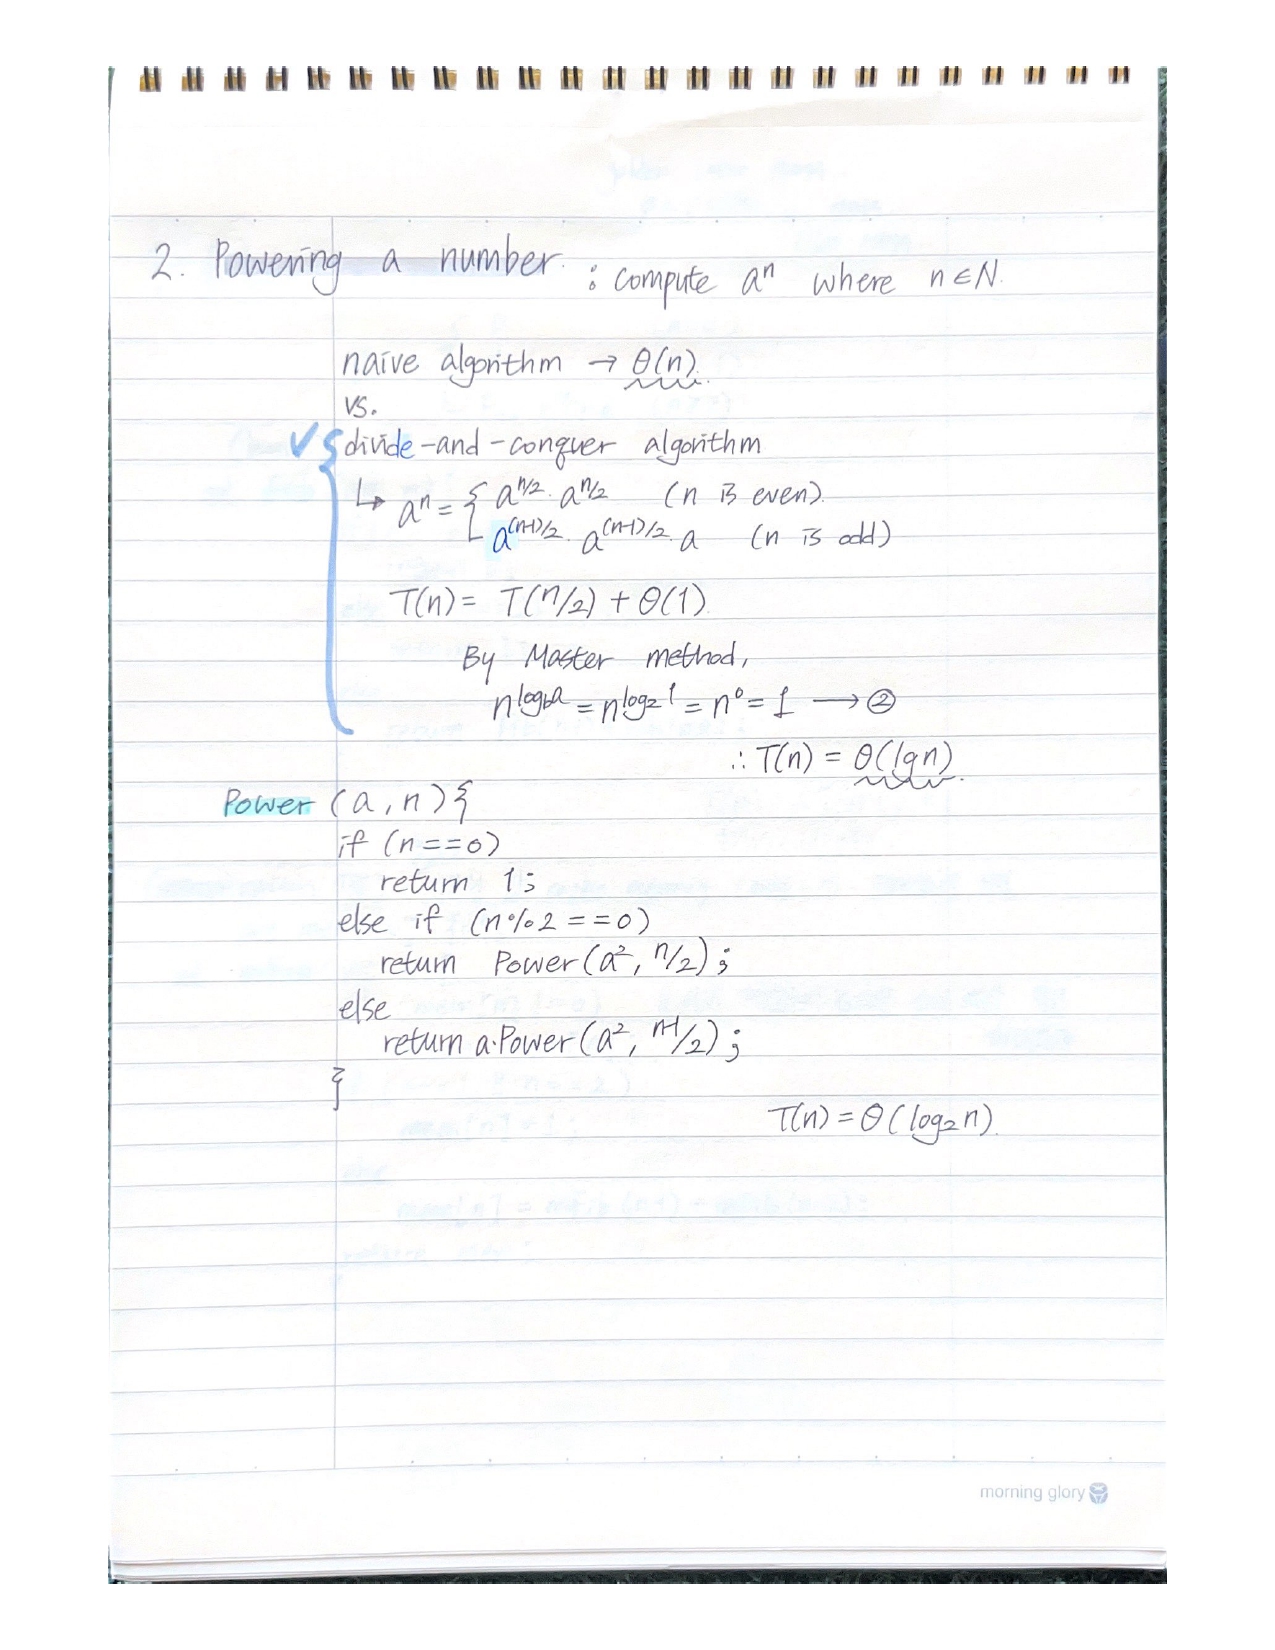 2. Powering a number. : compute aⁿ where n∈N.
naive algorithm → θ(n).
vs.
✓ { divide-and-conquer algorithm
↳ aⁿ = { a^(n/2) · a^(n/2) (n is even).
a^((n-1)/2) · a^((n-1)/2) · a (n is odd)
T(n) = T(n/2) + θ(1).
By Master method,
n^(log_b a) = n^(log₂ 1) = n⁰ = 1 → ②
∴ T(n) = θ(lgn).
Power (a, n) {
if (n==0)
return 1;
else if (n%2 ==0)
return Power(a², n/2);
else
return a·Power(a², n-1/2);
}
T(n) = θ(log₂n).
morning glory